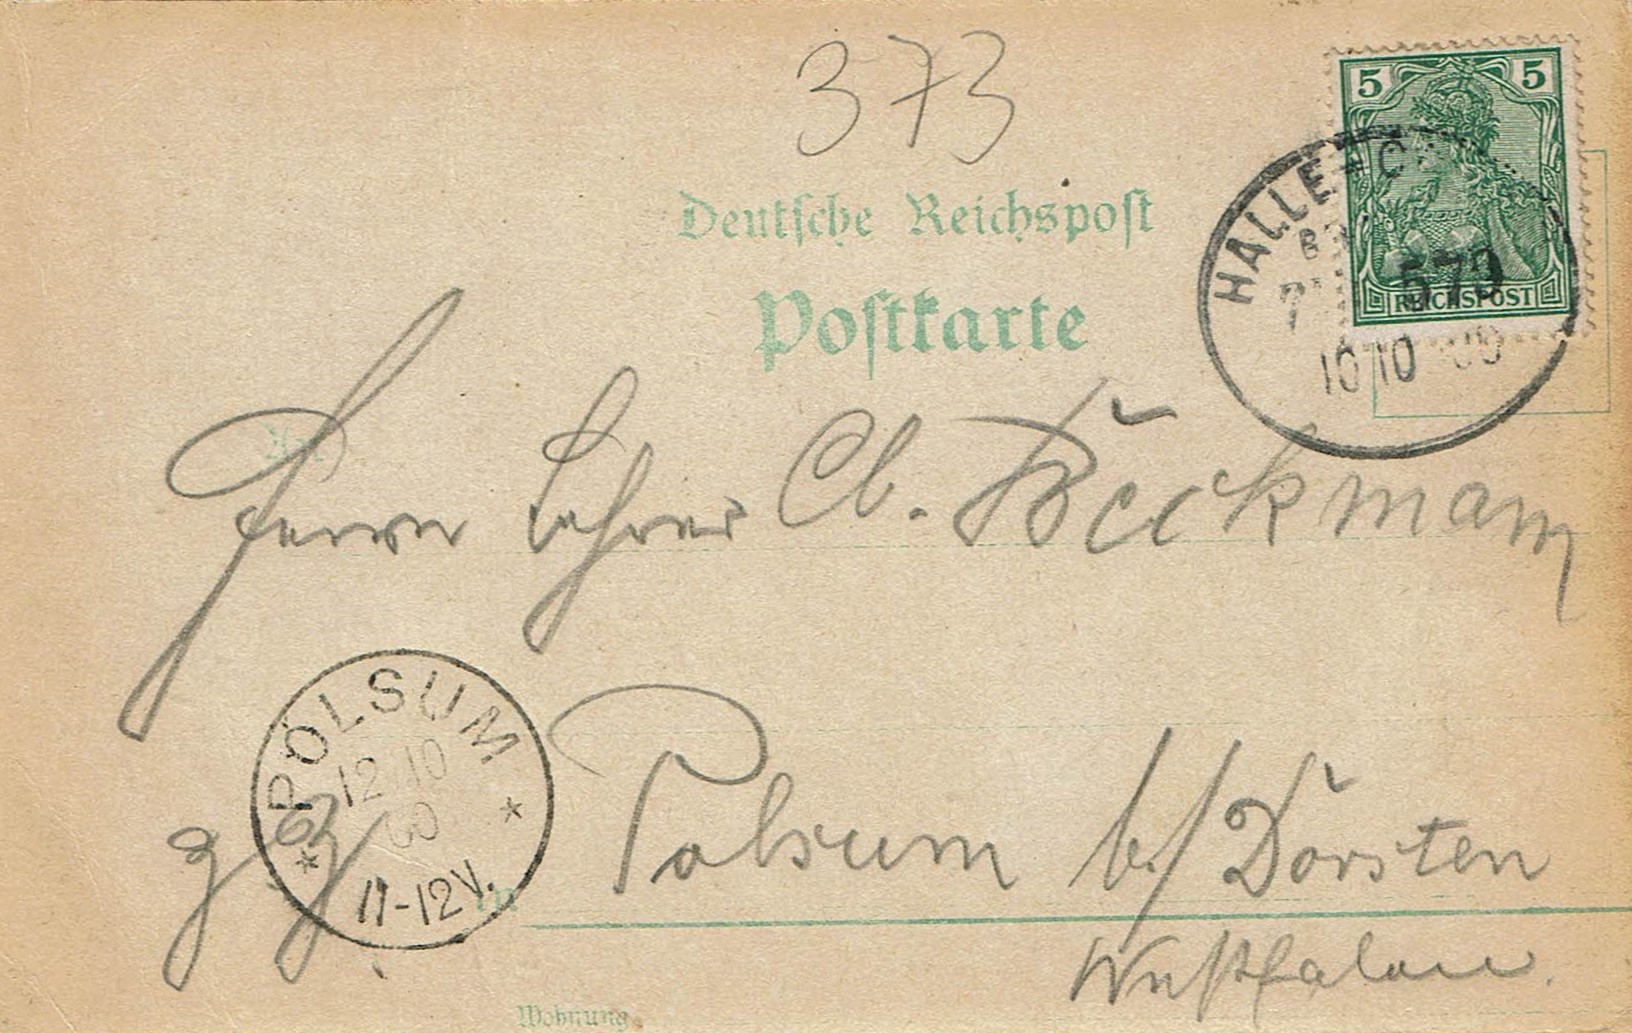 373
5 5
REICHSPOST
HALLE
573
10 10 00
Deutsche Reichspost
Postkarte
An
Herrn Lehrer Cl. Böckmann
POLSUM
12 10
00
11-12V.
in Polsum b/ Dorsten
Westfalen.
Wohnung